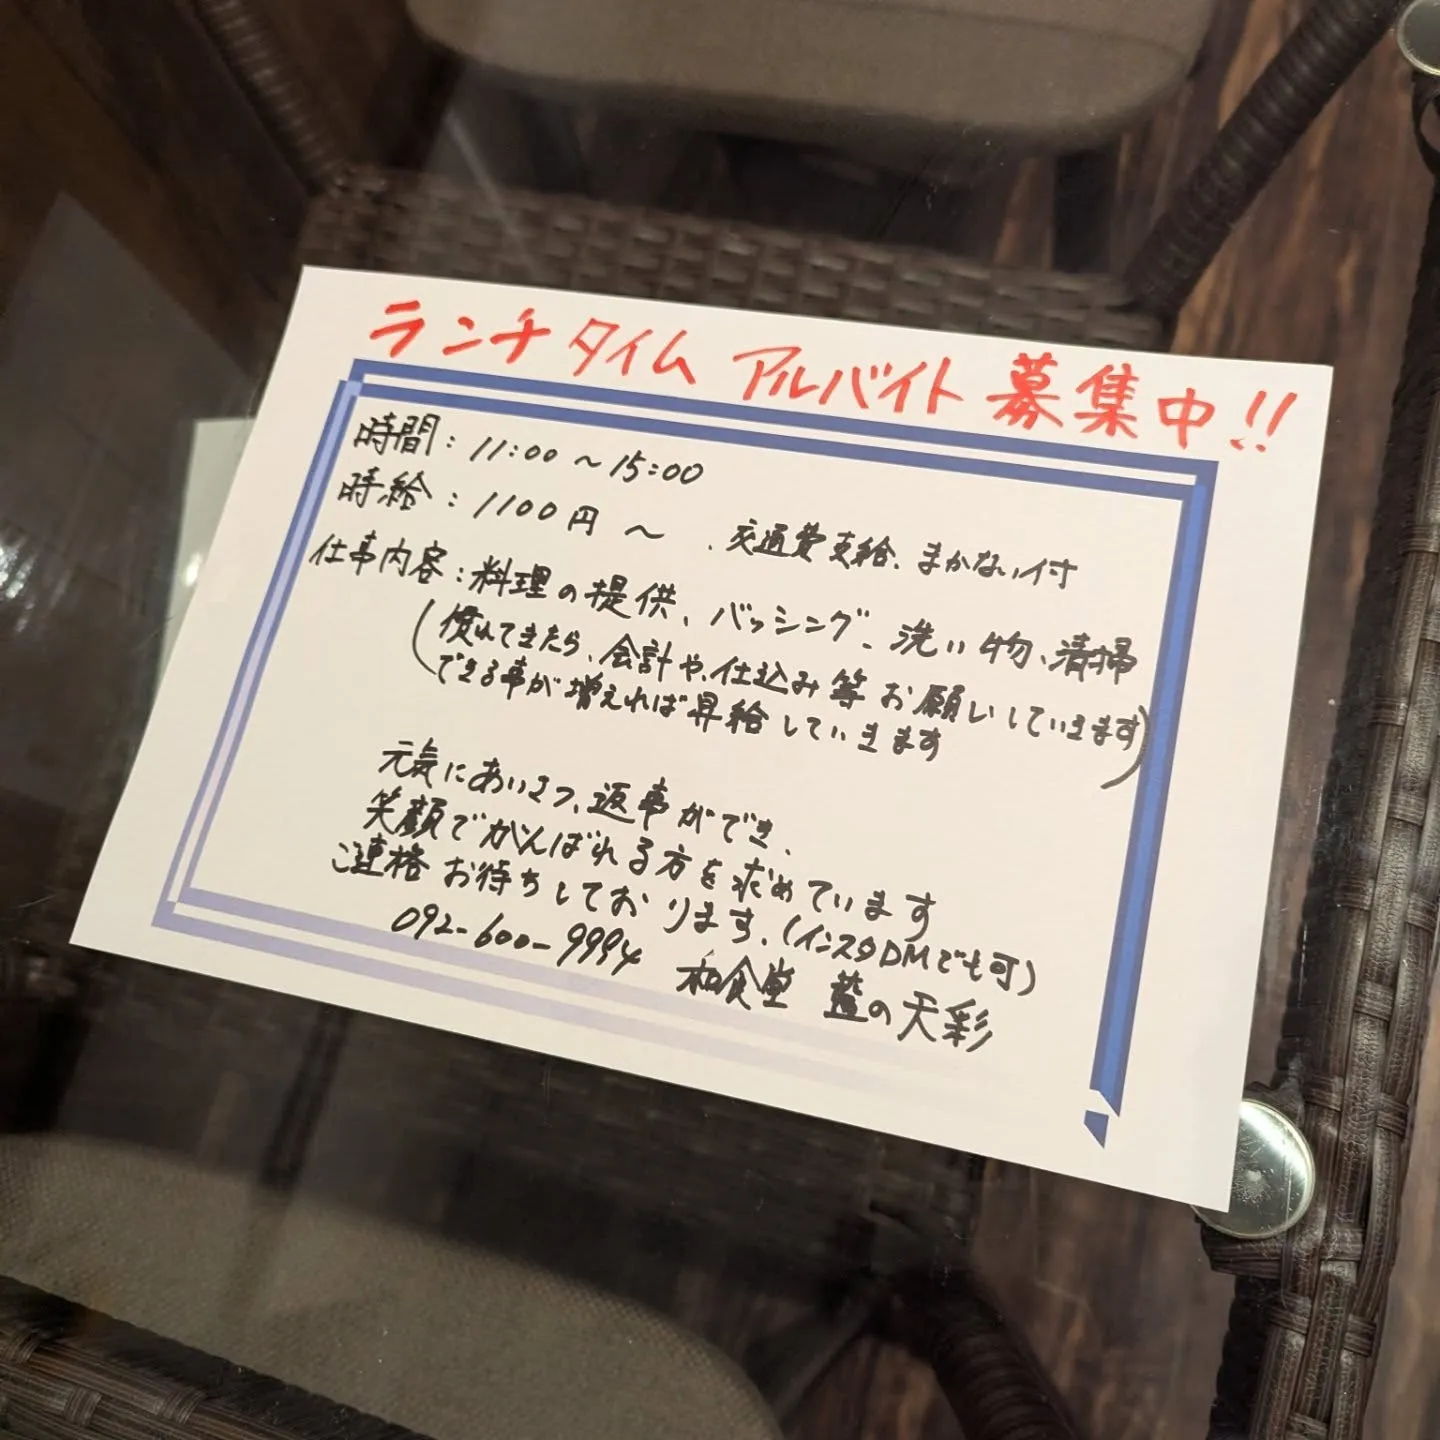 ランチタイム アルバイト 募集中!!
時間：11:00～15:00
時給：1100円～ 、交通費支給、まかない付
仕事内容：料理の提供、バッシング、洗い物、清掃
(慣れてきたら、会計や、仕込み等お願いしていきます
できる事が増えれば昇給していきます)
元気にあいさつ、返事ができ、
笑顔でがんばれる方を求めています
ご連絡お待ちしております、(インスタDMでも可)
092-600-9994 和食堂 藍の天彩